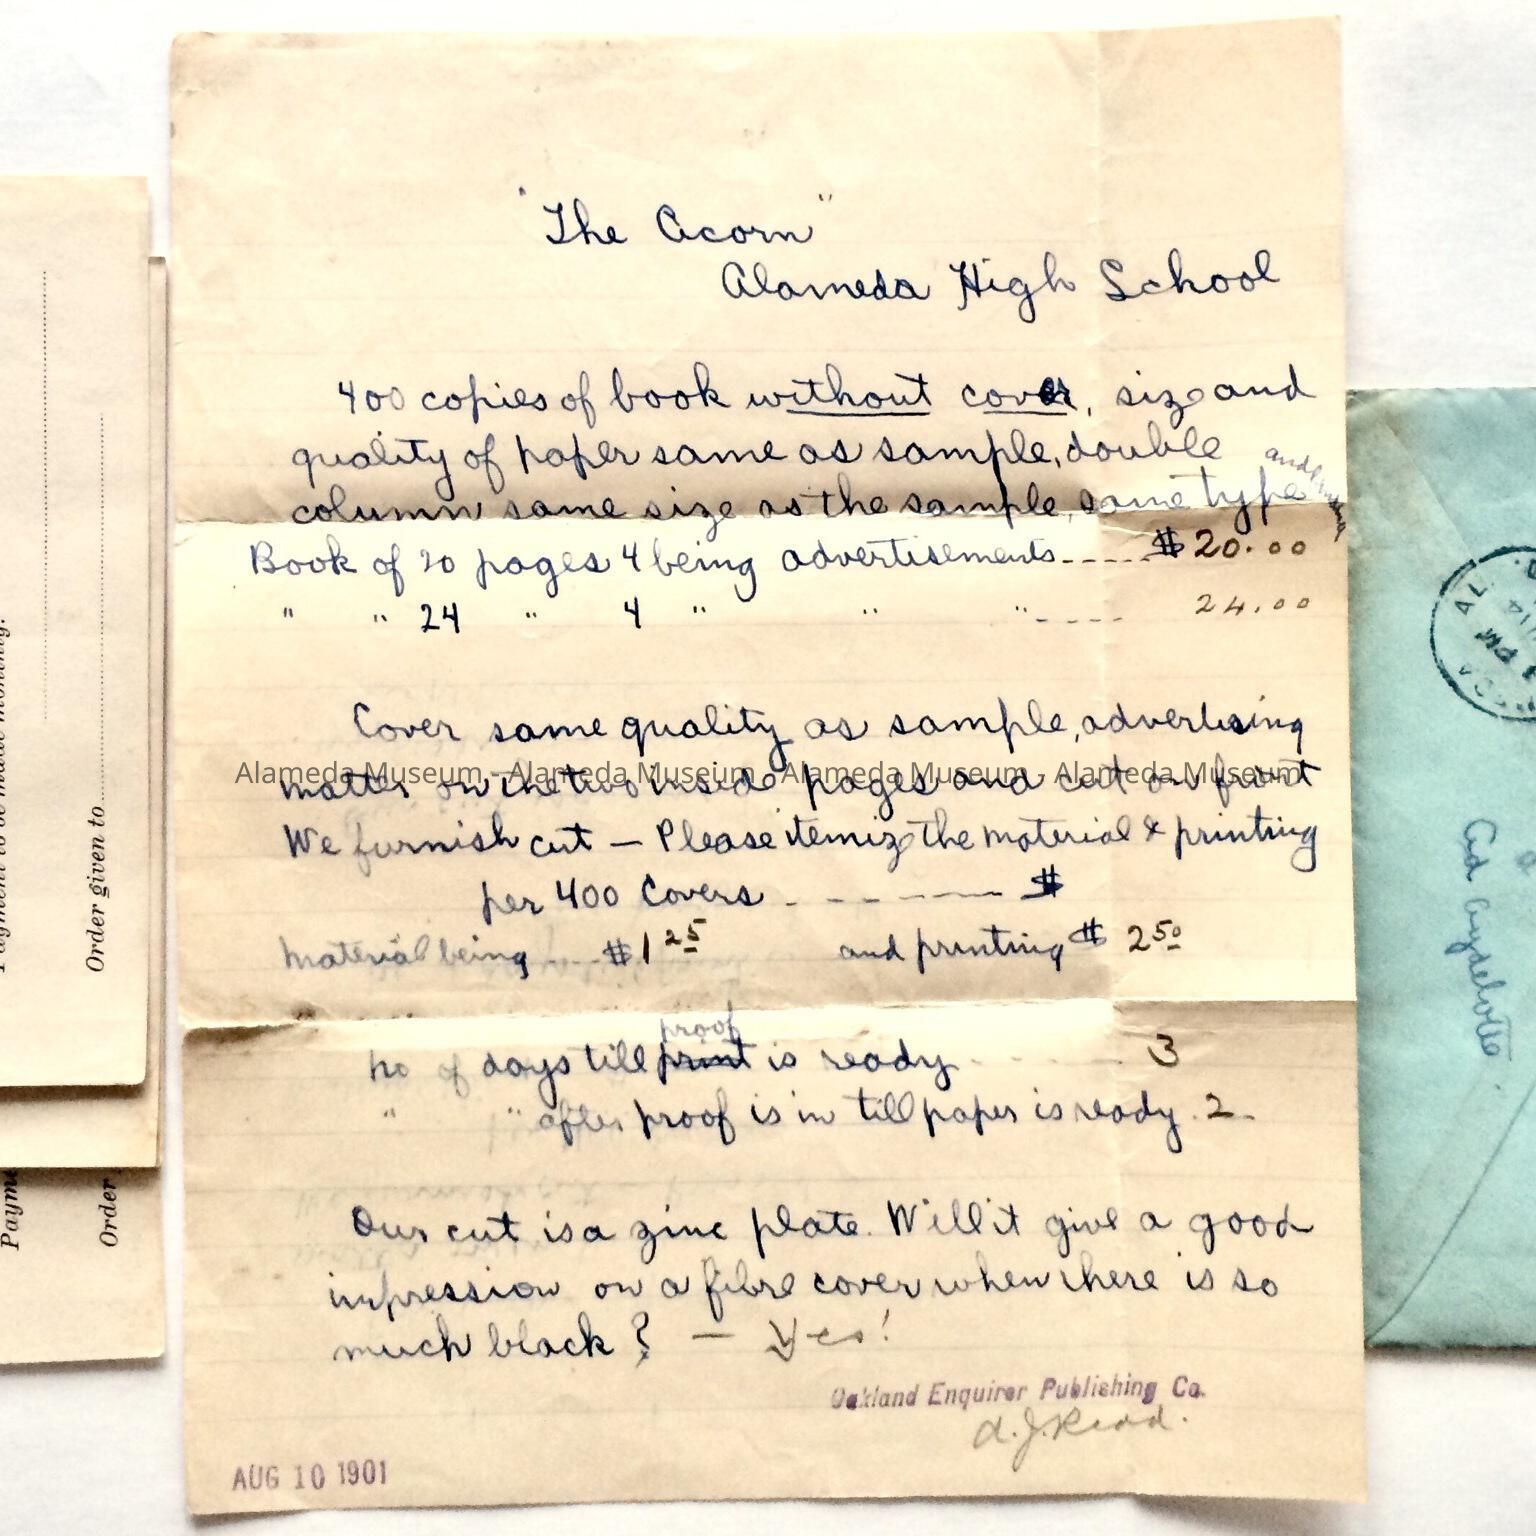 "The Acorn"
Alameda High School
400 copies of book without cover, size and
quality of paper same as sample, double
column same size as the sample, same type and binding
Book of 20 pages 4 being advertisements..... $20.00
" " 24 " 4 " " " .... 24.00
Cover same quality as sample, advertising
matter on the two inside pages and cut on front
Alameda Museum - Alameda Museum - Alameda Museum - Alameda Museum
We furnish cut — Please itemize the material & printing
per 400 Covers - - - - - - $
material being .... $1 25 and printing $ 2 50
proof
no of days till print is ready - - - - - 3
" " after proof is in till paper is ready . 2 -
Our cut is a zinc plate. Will it give a good
impression on a fibre cover when there is so
much black? — Yes!
Oakland Enquirer Publishing Co.
AUG 10 1901
Payment to be made monthly.
Order given to
Payme
Order